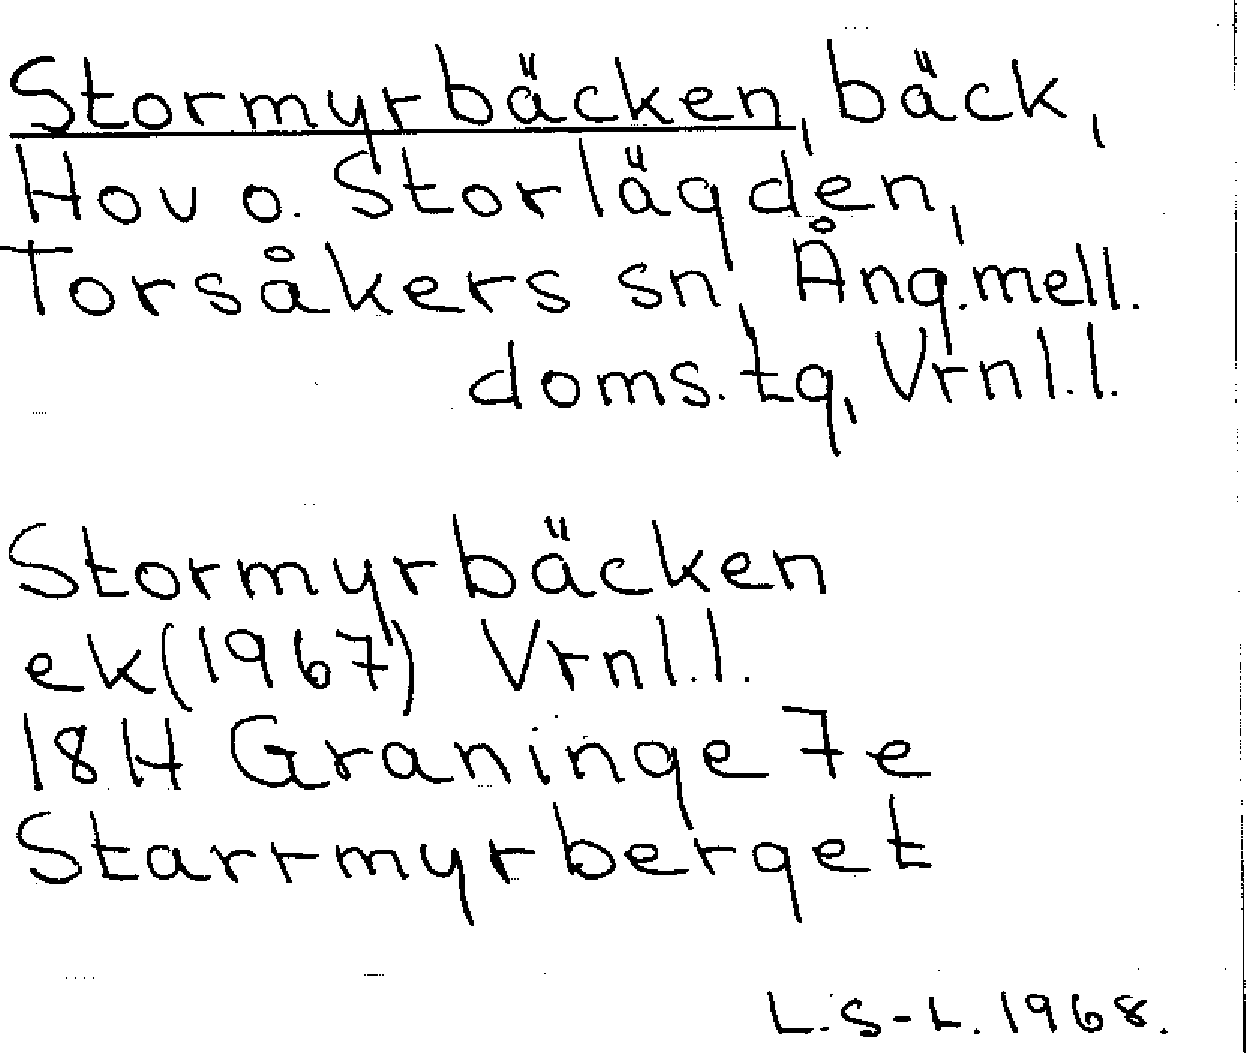 Stormyrbäcken, bäck,
Hov o. Storlägden,
Torsåkers sn, Ång.mell.
doms.tg, Vrnl.l.
Stormyrbäcken
ek(1967) Vrnl.l.
18H Graninge 7e
Starrmyrberget
L.S-L. 1968.